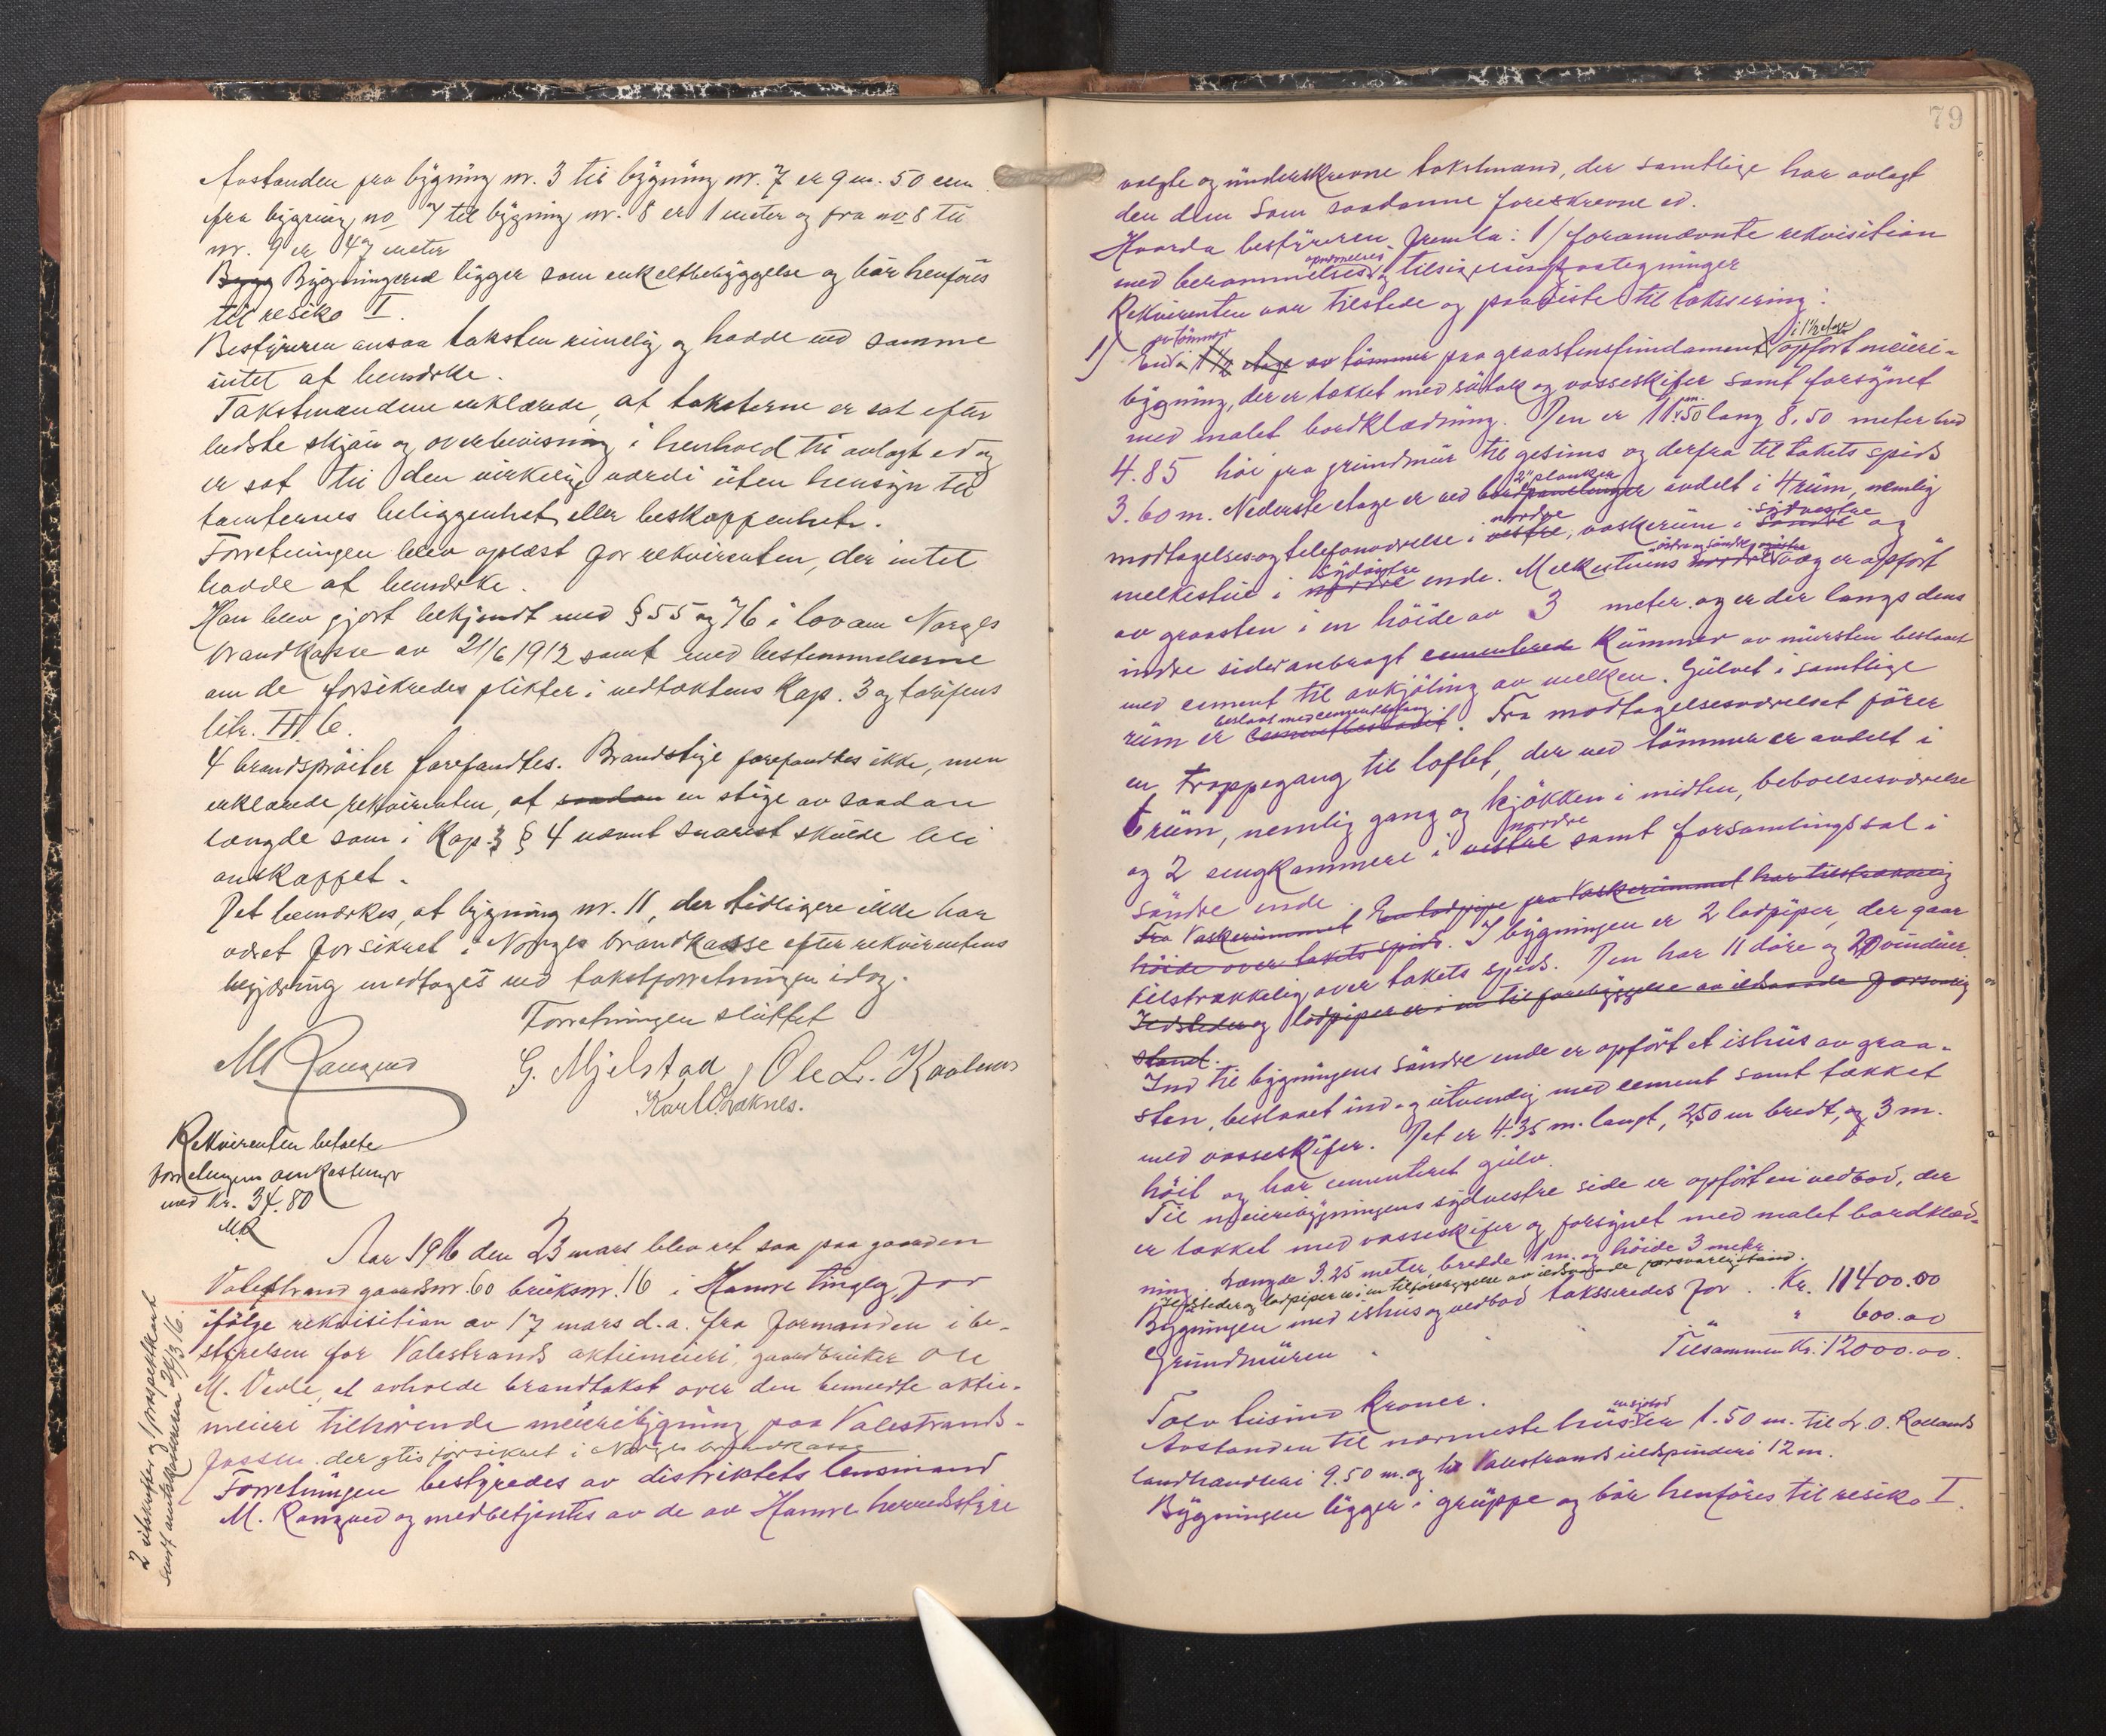 Avstanden fra bygning nr. 3 til bygning nr. 7 er 9 m. 50 cm.
fra bygning no 7 til bygning nr. 8 er 1 meter og fra no 8 til
nr. 9 er 47 meter
Bygg Bygningerne ligger som enkeltbebyggelse og bör henföres
til resiko I.
Bestyreren ansaa taksten rimelig og hadde ved samme
intet at bemerke.
Takstmændene erklærede, at taksterne er sat efter
bedste skjön og overbevisning i henhold til avlagt ed og
er sat til den virkelige værdi uten hensyn til
tomternes beliggenhet eller beskaffenhet.
Forretningen blev oplæst for rekvirenten, der intet
hadde at bemærke.
Han blev gjort bekjendt med § 55 og 76 i lov om Norges
brandkasse av 21/6 1912 samt med bestemmelserne
om de forsikredes plikter i vedtektens Kap. 3 og tarifens
litr. III C.
4 brandspröiter forefandtes. Brandstige forefandtes ikke, men
erklærede rekvirenten, at saadan en stige av saadan
længde som i Kap. 3 § 4 nævnt snarest skulde bli
anskaffet.
Det bemærkes, at bygning nr. 11, der tidligere ikke har
været forsikret i Norges brandkasse efter rekvirentens
begjæring medtages ved takstforretningen idag.
Forretningen sluttet
M Rongved G. Mjelstad, Ole L. Kvalem
Karl O. Raknes.
Rekvirenten betalte
forretningens omkostninger
med Kr. 34.80
MR
Aar 1916 den 23 mars blev ret sat paa gaarden
Valestrand gaardsnr. 60 bruksnr. 16 i Hamre tinglag for
ifölge rekvisition av 17 mars d.a. fra formanden i be-
styrelsen for Valestrands aktiemeieri, gaardbruker Ole
M. Vevle, at avholde brandtakst over den bemeldte aktie-
meieri tilhörende meieribygning paa Valestrands-
fossen. der agtes forsikret i Norges brandkasse
Forretningen bestyredes av distriktets lensmand
M. Rongved og medbetjentes av de av Hamre herredsstyre
2 utskrifter og 1 forespørselskort
sendt amtskontoret 28/3 16.
79
valgte og underskrevne takstmænd, der samtlige har avlagt
den dem som saadanne foreskrevne ed.
Hvorda bestyreren fremla: 1/ forannævnte rekvisition
opnævnelses
med berammelses og tilsigelsespaategninger
Rekvirenten var tilstede og paaviste til taksering:
av tömmer i 1½ etage
1) En i 1½ etage av tömmer paa graastensfundament opfört meieri-
bygning, der er tækket med sutak og vosseskifer samt forsynet
med malet bordklædning. Den er 11.50 m. lang 8,50 meter bred
4.85 höi fra grundmur til gesims og derfra til takets spids
2" planker
3.60 m. Nederste etage er ved bordpanelinger avdelt i 4 rum, nemlig
nordre sydvestre
modtagelses og telefonværelse i vestre, vaskerum i söndre og
sydöstre östre og söndre
melkestue i nordre ende. Melkestuens nordre væg er opfört
av graasten i en höide av 3 meter og er der langs dens
indre sider anbragt cementerede Kummer av mursten beslaaet
med cement til avkjöling av melken. Gulvet i samtlige
beslaaet med cementbelæg.
rum er cementbeslaaet. Fra modtagelsesværelset förer
en trappegang til loftet, der ved tömmer er avdelt i
6 rum, nemlig gang og kjökken i midten, beboelsesværelse
nordre
og 2 sengkammere i vestre samt forsamlingssal i
söndre ende.
Fra Vaskerummet En lodpipe fra Vaskerummet har tilstrækkelig
höide over takets spids. I bygningen er 2 lodpiper, der gaar
tilstrækkelig over takets spids. Den har 11 döre og 20 vinduer.
Ildsteder og lodpiper er i en til forebyggelse av ildsvaade forsvarlig
stand.
Ind til bygningens söndre ende er opfört et ishus av graa-
sten, beslaaet ind- og utvendig med cement samt tækket
med vosseskifer. Det er 4.35 m. langt, 2,50 m bredt, og 3 m.
höit og har cementeret gulv.
Til meieribygningens sydvestre side er opfört en vedbod, der
er tækket med vosseskifer og forsynet med malet bordklæd-
ning. Længde 3.25 meter, bredde 1 m. og höide 3 meter
Ildsteder og lodpiper er i en til forebyggelse av ildsvaade forsvarlig stand.
Bygningen med ishus og vedbod taksseredes for . Kr. 11400.00
Grundmuren . " " 600.00
Tilsammen Kr. 12000.00.
Tolv tusind Kroner.
en sjöbod
Avstanden til nærmeste hus er 1.50 m. til L. O. Rollands
landhandleri 9.50 m. og til Valestrands uldspinderi 12 m.
Bygningen ligger i gruppe og bör henföres til resiko I.